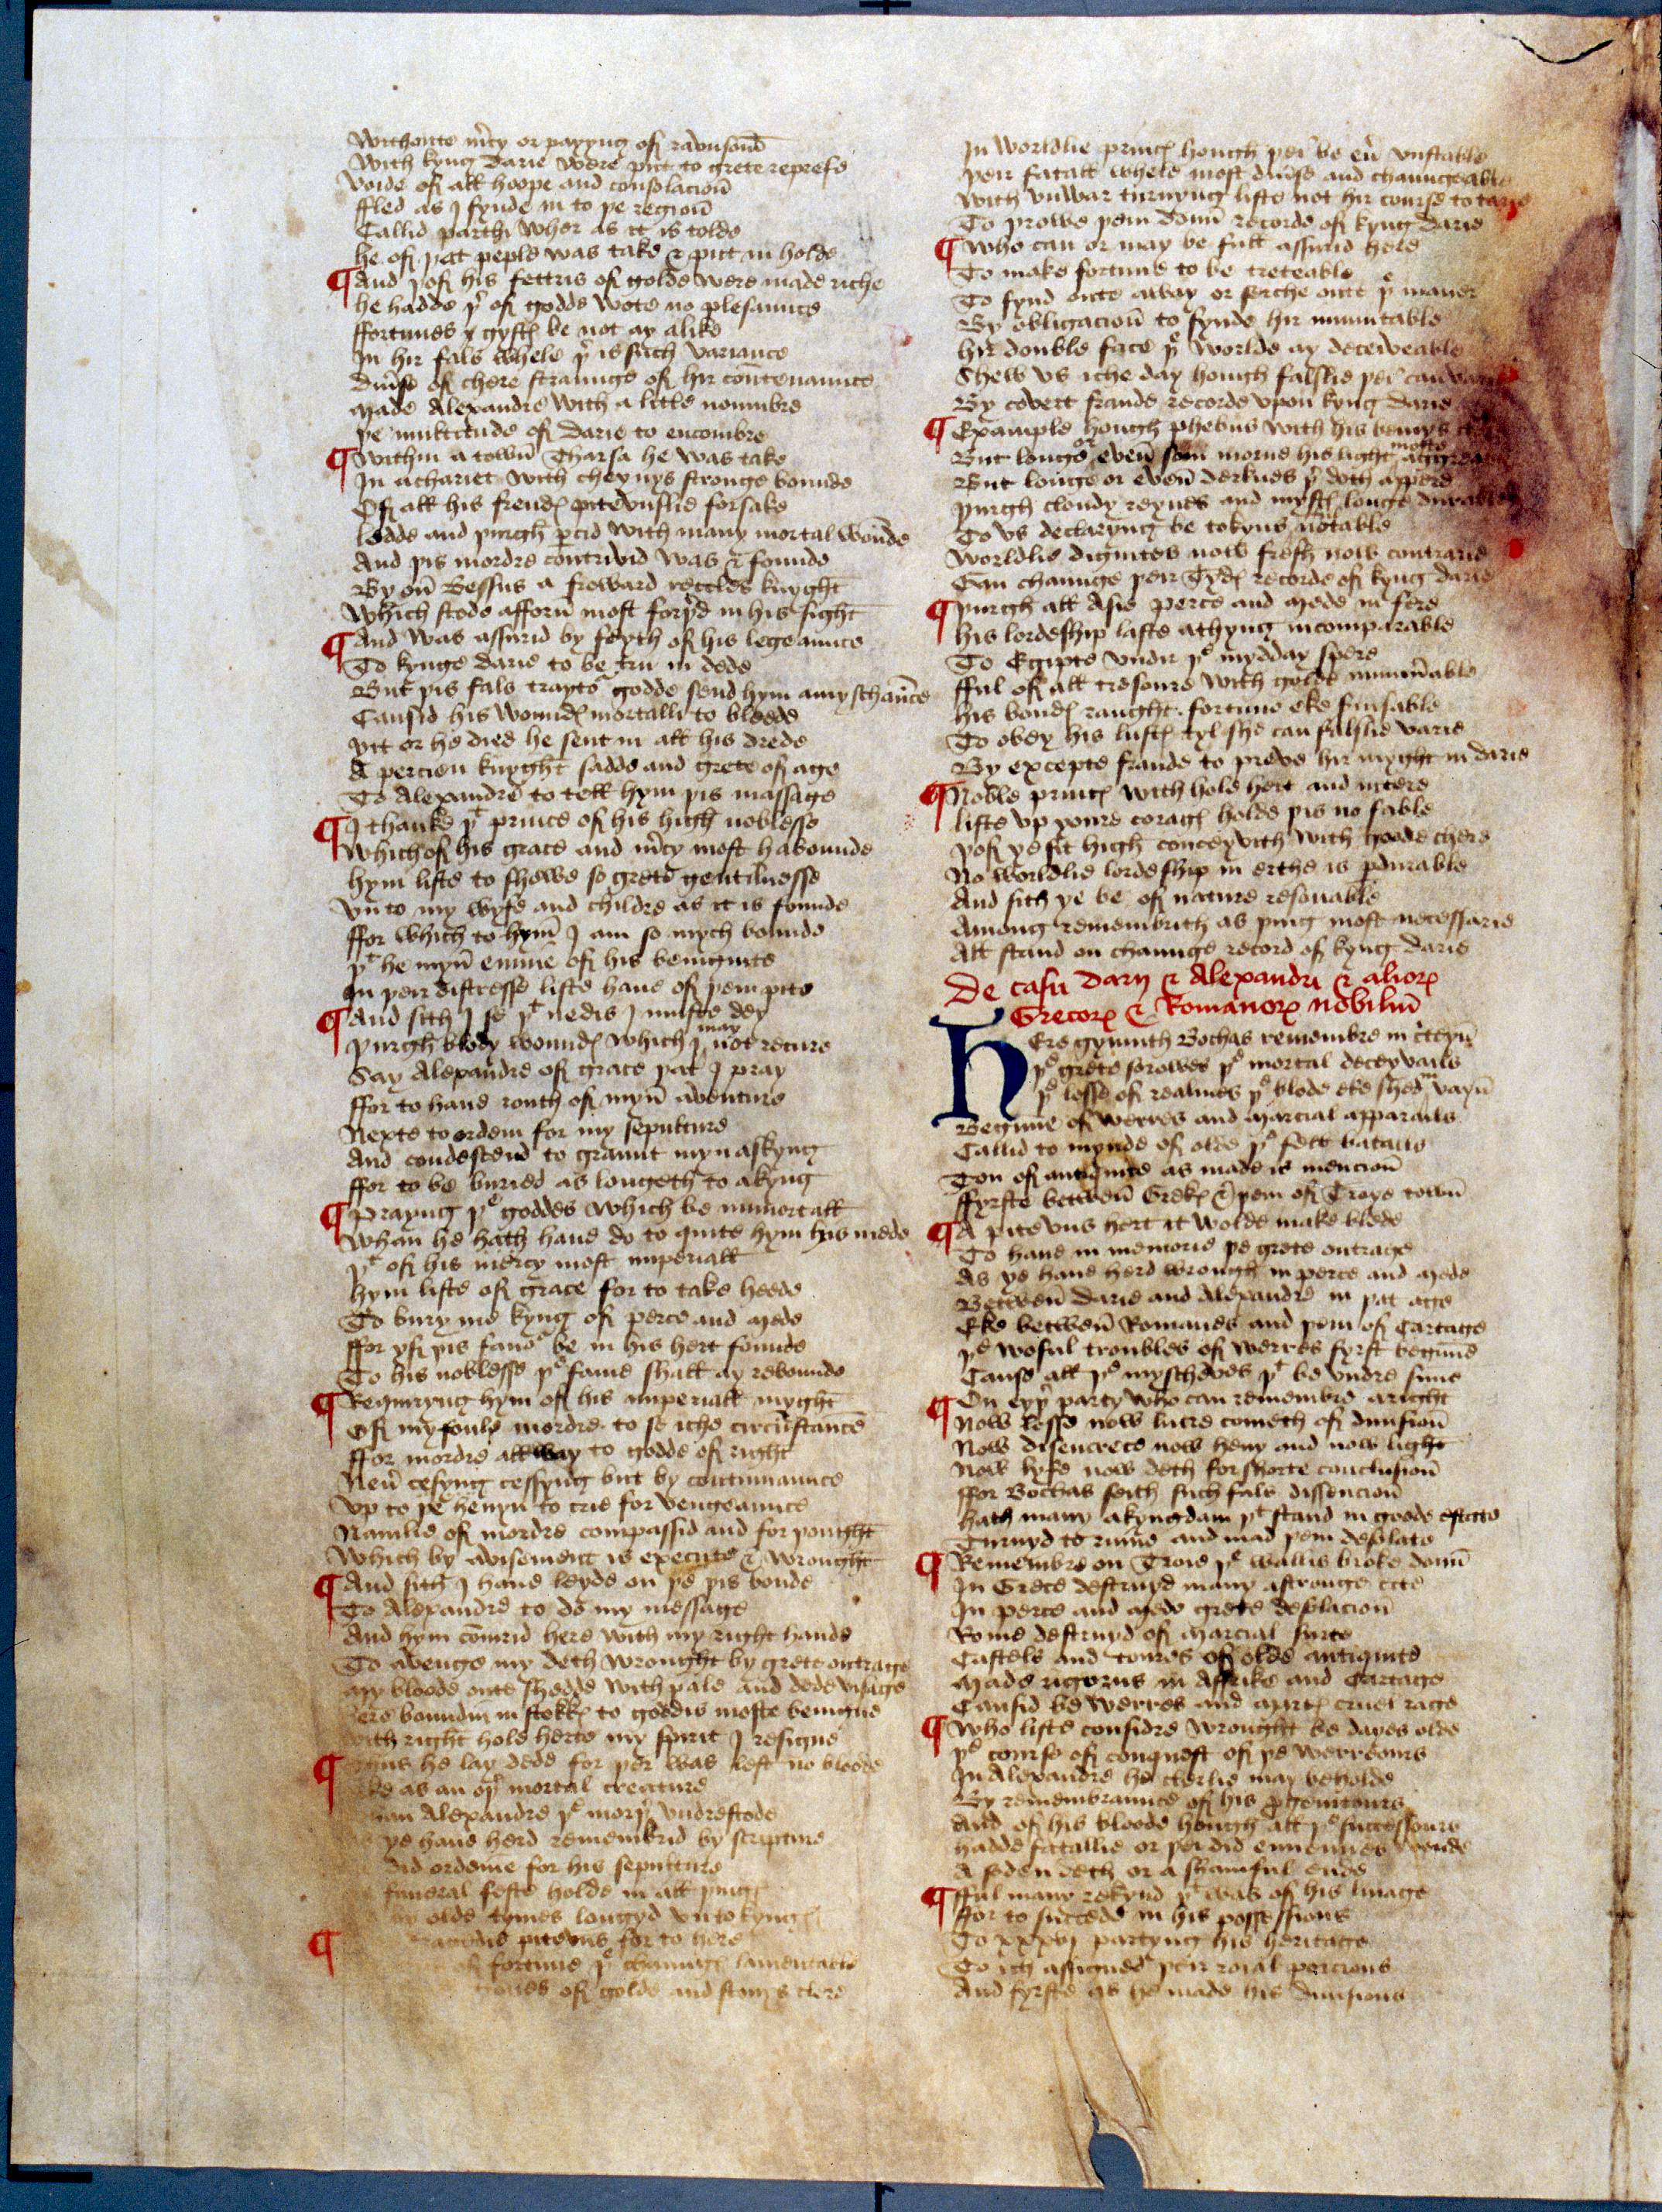 Withoute mercy or payyng of raunsoun
With kyng Darie were put to grete represe
Voide of all hoope and consolacioun
ffled as I fynde in to þe regioun
Callid parthi wher as it is tolde
he of þat peple was take & put in holde
¶ And þof his fettris of golde were made riche
he hadde þer of godde wote no plesaunce
ffortunes gyftes be not ay alike
In hir fals whele þer is such variance
Diuerse of chere straunge of hir contenaunce
Made Alexandre with a litle noumbre
þe multitude of Darie to encombre
¶ Within a town Tharsa he was take
In a chariet with cheynys stronge bounde
Of all his frendes pitevuslie forsake
ledde and þurgh percid with many mortal wounde
And þis mordre contrivid was & founde
By on Bessus a froward reccles knyght
Which stode afforn most forþerd in his sight
¶ And was assurid by feyth of his legeaunce
To kynge Darie to be tru in dede
But þis fals traytor godde send hym amyschaunce
Causid his woundes mortalli to bleede
yit or he died he sent in all his drede
A percien knyght sadde and grete of age
To Alexandre to tell hym þis massage
¶ I thanke þt prince of his high noblesse
Which of his grace and mercy most habounde
hym liste to shewe so grete gentilnesse
Vn to my wyfe and childre as it is founde
ffor which to hym I am so mych bounde
þt he myn enmie of his benignite
In þeir distresse liste haue of þem pite
¶ And sith I se þt nedis I muste dey
þurgh blody woundes which I may not recure
Say Alexandre of grace þat I pray
ffor to haue routh of myn aventure
Nexte to ordein for my sepulture
And condescend to graunt myn askyng
ffor to be buried as longeth to a kyng
¶ Prayng þe goddes which be immortall
Whan he hath haue do to quite hym his mede
þt of his mercy most imperiall
hym liste of grace for to take heede
To bury me kyng of perce and Mede
ffor yf þis fauor be in his hert founde
To his noblesse þe fame shall ay rebounde
¶ Requiryng hym of his imperiall myght
Of my foule mordre to se iche circumstance
ffor mordre allway to godde of right
Neuer cesyng cessyng but by continuaunce
Vp to þe heuyn to crie for vengeaunce
Namlie of mordre compassid and forþought
Which by avisement is execute & wrought
¶ And sith I haue leyde on þe þis bonde
To Alexandre to do my message
And hym comrid here with my right hande
To avenge my deth wrought by grete outrage
My bloode oute shedde with pale and dede visage
bounden in stokkes to goddis moste benigne
with right hole herte my spirit I resigne
¶ he lay dede for þer was left no bloode
as an oþer mortal creature
Alexandre þe morþer vndrestode
ye haue herd remembrid by scripture
did ordeine for his sepulture
funeral feste holde in all þing
by olde tymes longyd vnto kynges
¶ pitevus for to here
of fortune þe chaunge lamentable
of golde and stonys clere
In worldlie princes hough þei be euer vnstable
þeir fatall whele most diuerse and chaungeable
With vnwar turnyng liste not hir course to tarie
To prowe þem doun recorde of kyng Darie
¶ Who can or may be full assurid here
To make fortune to be treteable
To fynd oute away or serche oute þe maner
By obligacioun to fynde hir immutable
hir double face þe worlde ay deceiveable
Shew vs iche day hough falslie þei can varie
By covert fraude recorde vpon kyng Darie
¶ Example hough phebus with his bemys
But longe or even som morne his light
But longe or even derknes þer doth appere
þurgh cloudy reynes and mystes longe durable
To vs declaryng be tokyns notable
Worldlie dignites now fresh now contrarie
Can chaunge þeir Tydes recorde of kyng Darie
¶ þurgh all Asie Perce and Mede in fere
his lordeship laste a thyng incomparable
To Egipte vndir þe mydday spere
fful of all tresoure with golde innumerable
his bondes raught fortune eke finsable
To obey his lustes tyl she can falslie varie
By excepte fraude to preve hir myght in Darie
¶ Noble princes with hole hert and intere
lifte vp youre corages holde þis no fable
þof ye sit high conceyvith with goode chere
No worldlie lordeship in erthe is perdurable
And sith ye be of nature resonable
Among remembrith as þing most necessarie
All stand on chaunge record of kyng Darie
De casu Darij & Alexandri & aliorum
Grecorum & Romanorum nobilium
hEre gynnith Bochas remembre in certeyn
þe grete sorowes þe mortal deceyvails
þe losse of realmes þe blode eke shed in vayn
Begynne of werres and Marcial apparails
Callid to mynde of olde þe fell batails
Ton of antiquite as made is mencioun
ffyrste betwen Grekes & þem of Troye town
¶ A pitevus hert it wolde make blede
To haue in memorie þe grete outrage
As ye haue herd wrough in perce and Mede
Betwen Darie and Alexandre in þat age
Eke betwen Romanes and þem of Cartage
þe woful troubles of werres fyrst begunne
Cause all þe myscheves þt be vndre sunne
¶ On eyþer party who can remembre aright
Now losse now lucre cometh of diuisioun
Now disencrece now hevy and now light
Now lyfe now deth for shorte conclusioun
ffor Bochas seith such fals dissencioun
hath many a kyngdam þt stand in goode estate
Turnyd to ruine and mad þem desolate
¶ Remembre on Troie þe wallis broke doun
In Grece destruyd many a stronge cite
In perce and Mede grete desolacioun
Rome destruyd of Marcial surte
Castels and toures of olde antiquite
Made rigorus in Affrike and Cartage
Causid be werres and Martes cruel rage
¶ Who liste considre wrought be dayes olde
þe course of conquest of þe werreours
In Alexandre he clerlie may beholde
By remembraunce of his progenitours
And of his bloode hough all þe successours
hadde fatallie or þei did ennemies wende
A soden deth or a shamful ende
¶ fful many rekynd þt was of his linage
ffor to succede in his possessions
To xxxvj partyng his heritage
To ich assigned þeir roial porcions
And fyrste as he made his diuisions